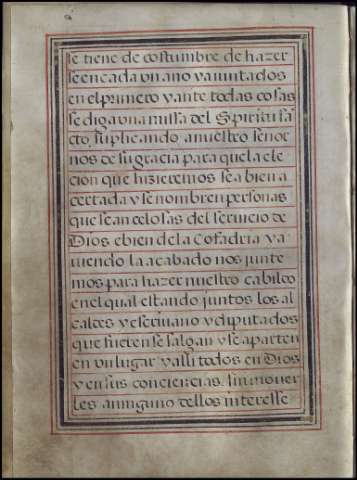 se tiene de costumbre de hazer
se en cada vn ano y ayuntados
en el primero y ante todas cosas
se diga vna missa del Spiritu sa
cto, suplicando a nuestro señor
nos de su graçia para que la ele
cion que hizieremos sea bien a
certada y se nombren personas
que sean celosas del seruicio de
Dios e bien de la Cofadria y a
uiendo la acabado nos junte
mos para hazer nuestro cabildo
en el qual estando juntos los al
caldes y escriuano y diputados
que fueren se salgan y se aparten
en vn lugar y alli todos en Dios
y en sus conciencias, sin mouer
les a ninguno dellos interesse